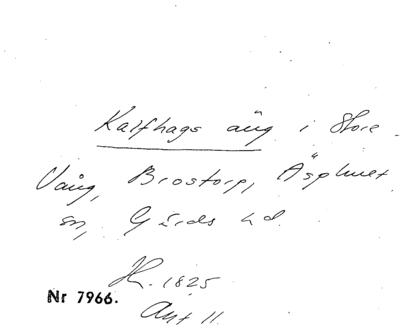 Kalfhags äng i Store
Vång, Brostorp, Äsphult
sn, Gärds hd.
H. 1825
Nr 7966.
Akt 11.